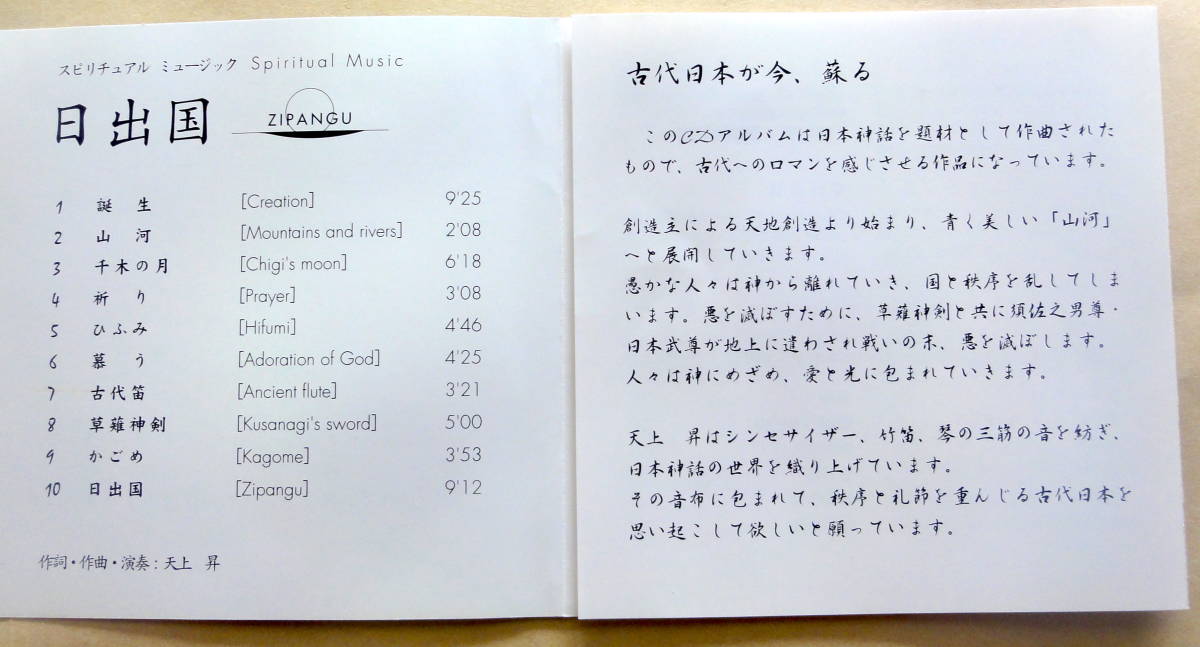 スピリチュアル ミュージック Spiritual Music
日出国 ZIPANGU
1 誕 生 [Creation] 9'25
2 山 河 [Mountains and rivers] 2'08
3 千木の月 [Chigi's moon] 6'18
4 祈 り [Prayer] 3'08
5 ひふみ [Hifumi] 4'46
6 慕 う [Adoration of God] 4'25
7 古代笛 [Ancient flute] 3'21
8 草薙神剣 [Kusanagi's sword] 5'00
9 かごめ [Kagome] 3'53
10 日出国 [Zipangu] 9'12
作詞・作曲・演奏：天上 昇
古代日本が今、蘇る
このCDアルバムは日本神話を題材として作曲された
もので、古代へのロマンを感じさせる作品になっています。
創造主による天地創造より始まり、青く美しい「山河」
へと展開していきます。
愚かな人々は神から離れていき、国と秩序を乱してしま
います。悪を滅ぼすために、草薙神剣と共に須佐之男尊・
日本武尊が地上に遣わされ戦いの末、悪を滅ぼします。
人々は神にめざめ、愛と光に包まれていきます。
天上 昇はシンセサイザー、竹笛、琴の三筋の音を紡ぎ、
日本神話の世界を織り上げています。
その音布に包まれて、秩序と礼節を重んじる古代日本を
思い起こして欲しいと願っています。